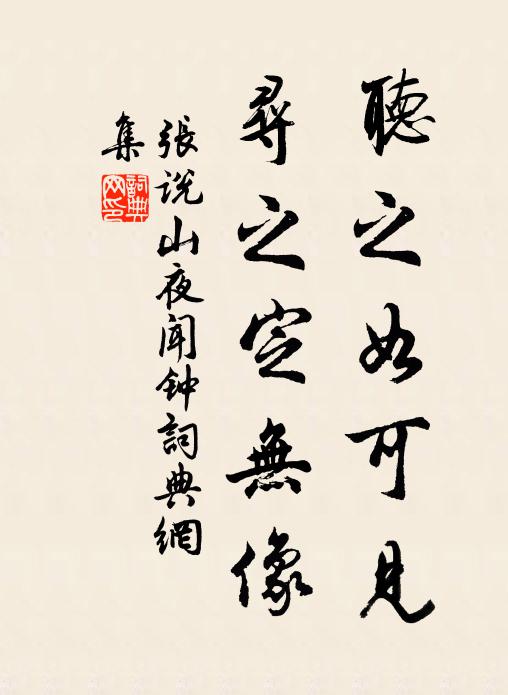 聽之如可見
尋之定無像
張说山夜闻钟詞典網
集
詞典
网印